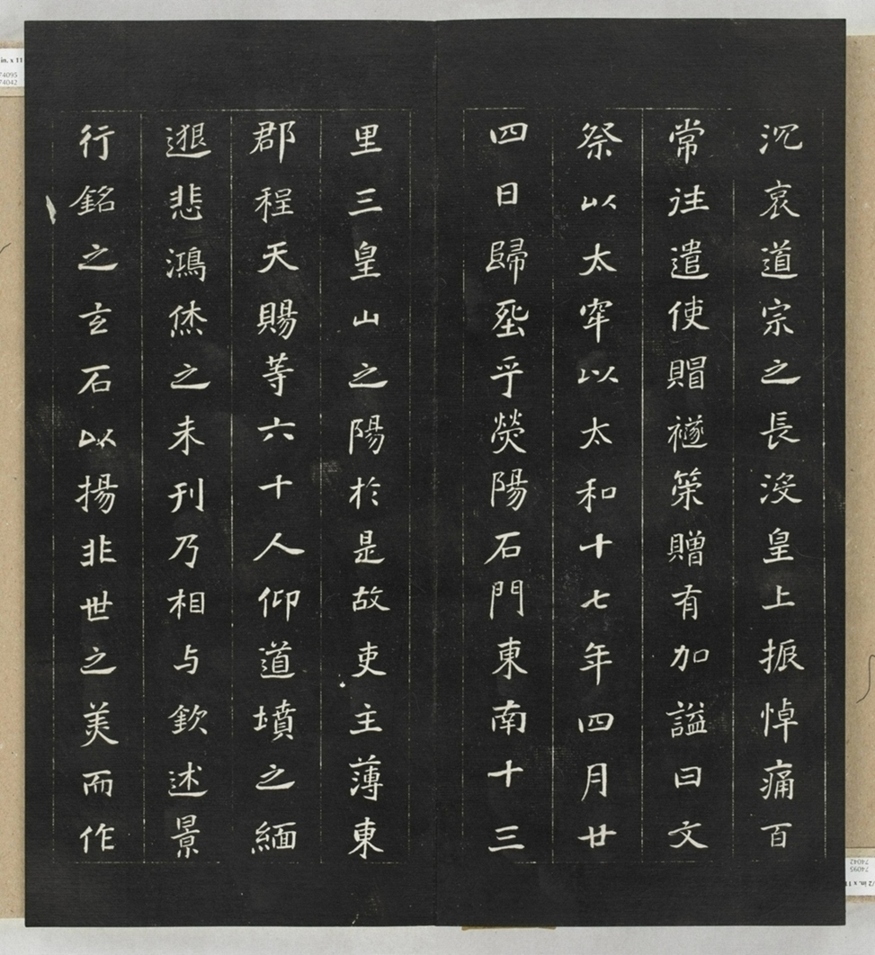 沉哀道宗之長沒皇上振悼痛百
常往遣使賵襚策贈有加謚曰文
祭以太牢以太和十七年四月廿
四日歸窆乎熒陽石門東南十三
里三皇山之陽於是故吏主薄東
郡程天賜等六十人仰道墳之緬
邈悲鴻休之未刊乃相与欽述景
行銘之玄石以揚非世之美而作
in. x 11
74095
74042
74042
74095